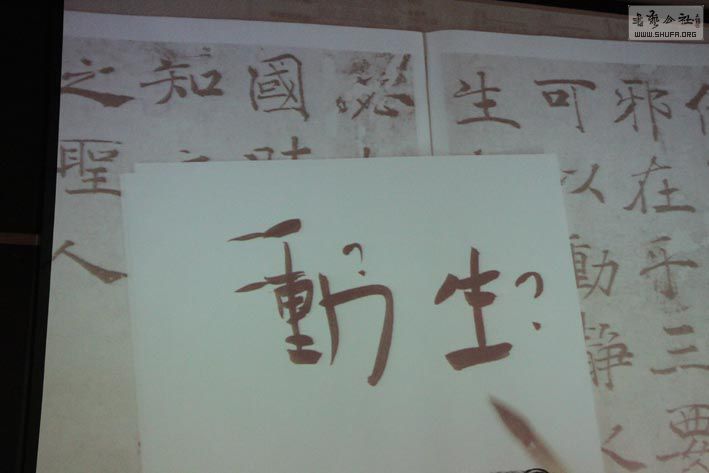 書藝公社
WWW.SHUFA.ORG
邪在乎三要
可以動靜
生
必
國時
知之
之聖人
動? 生?